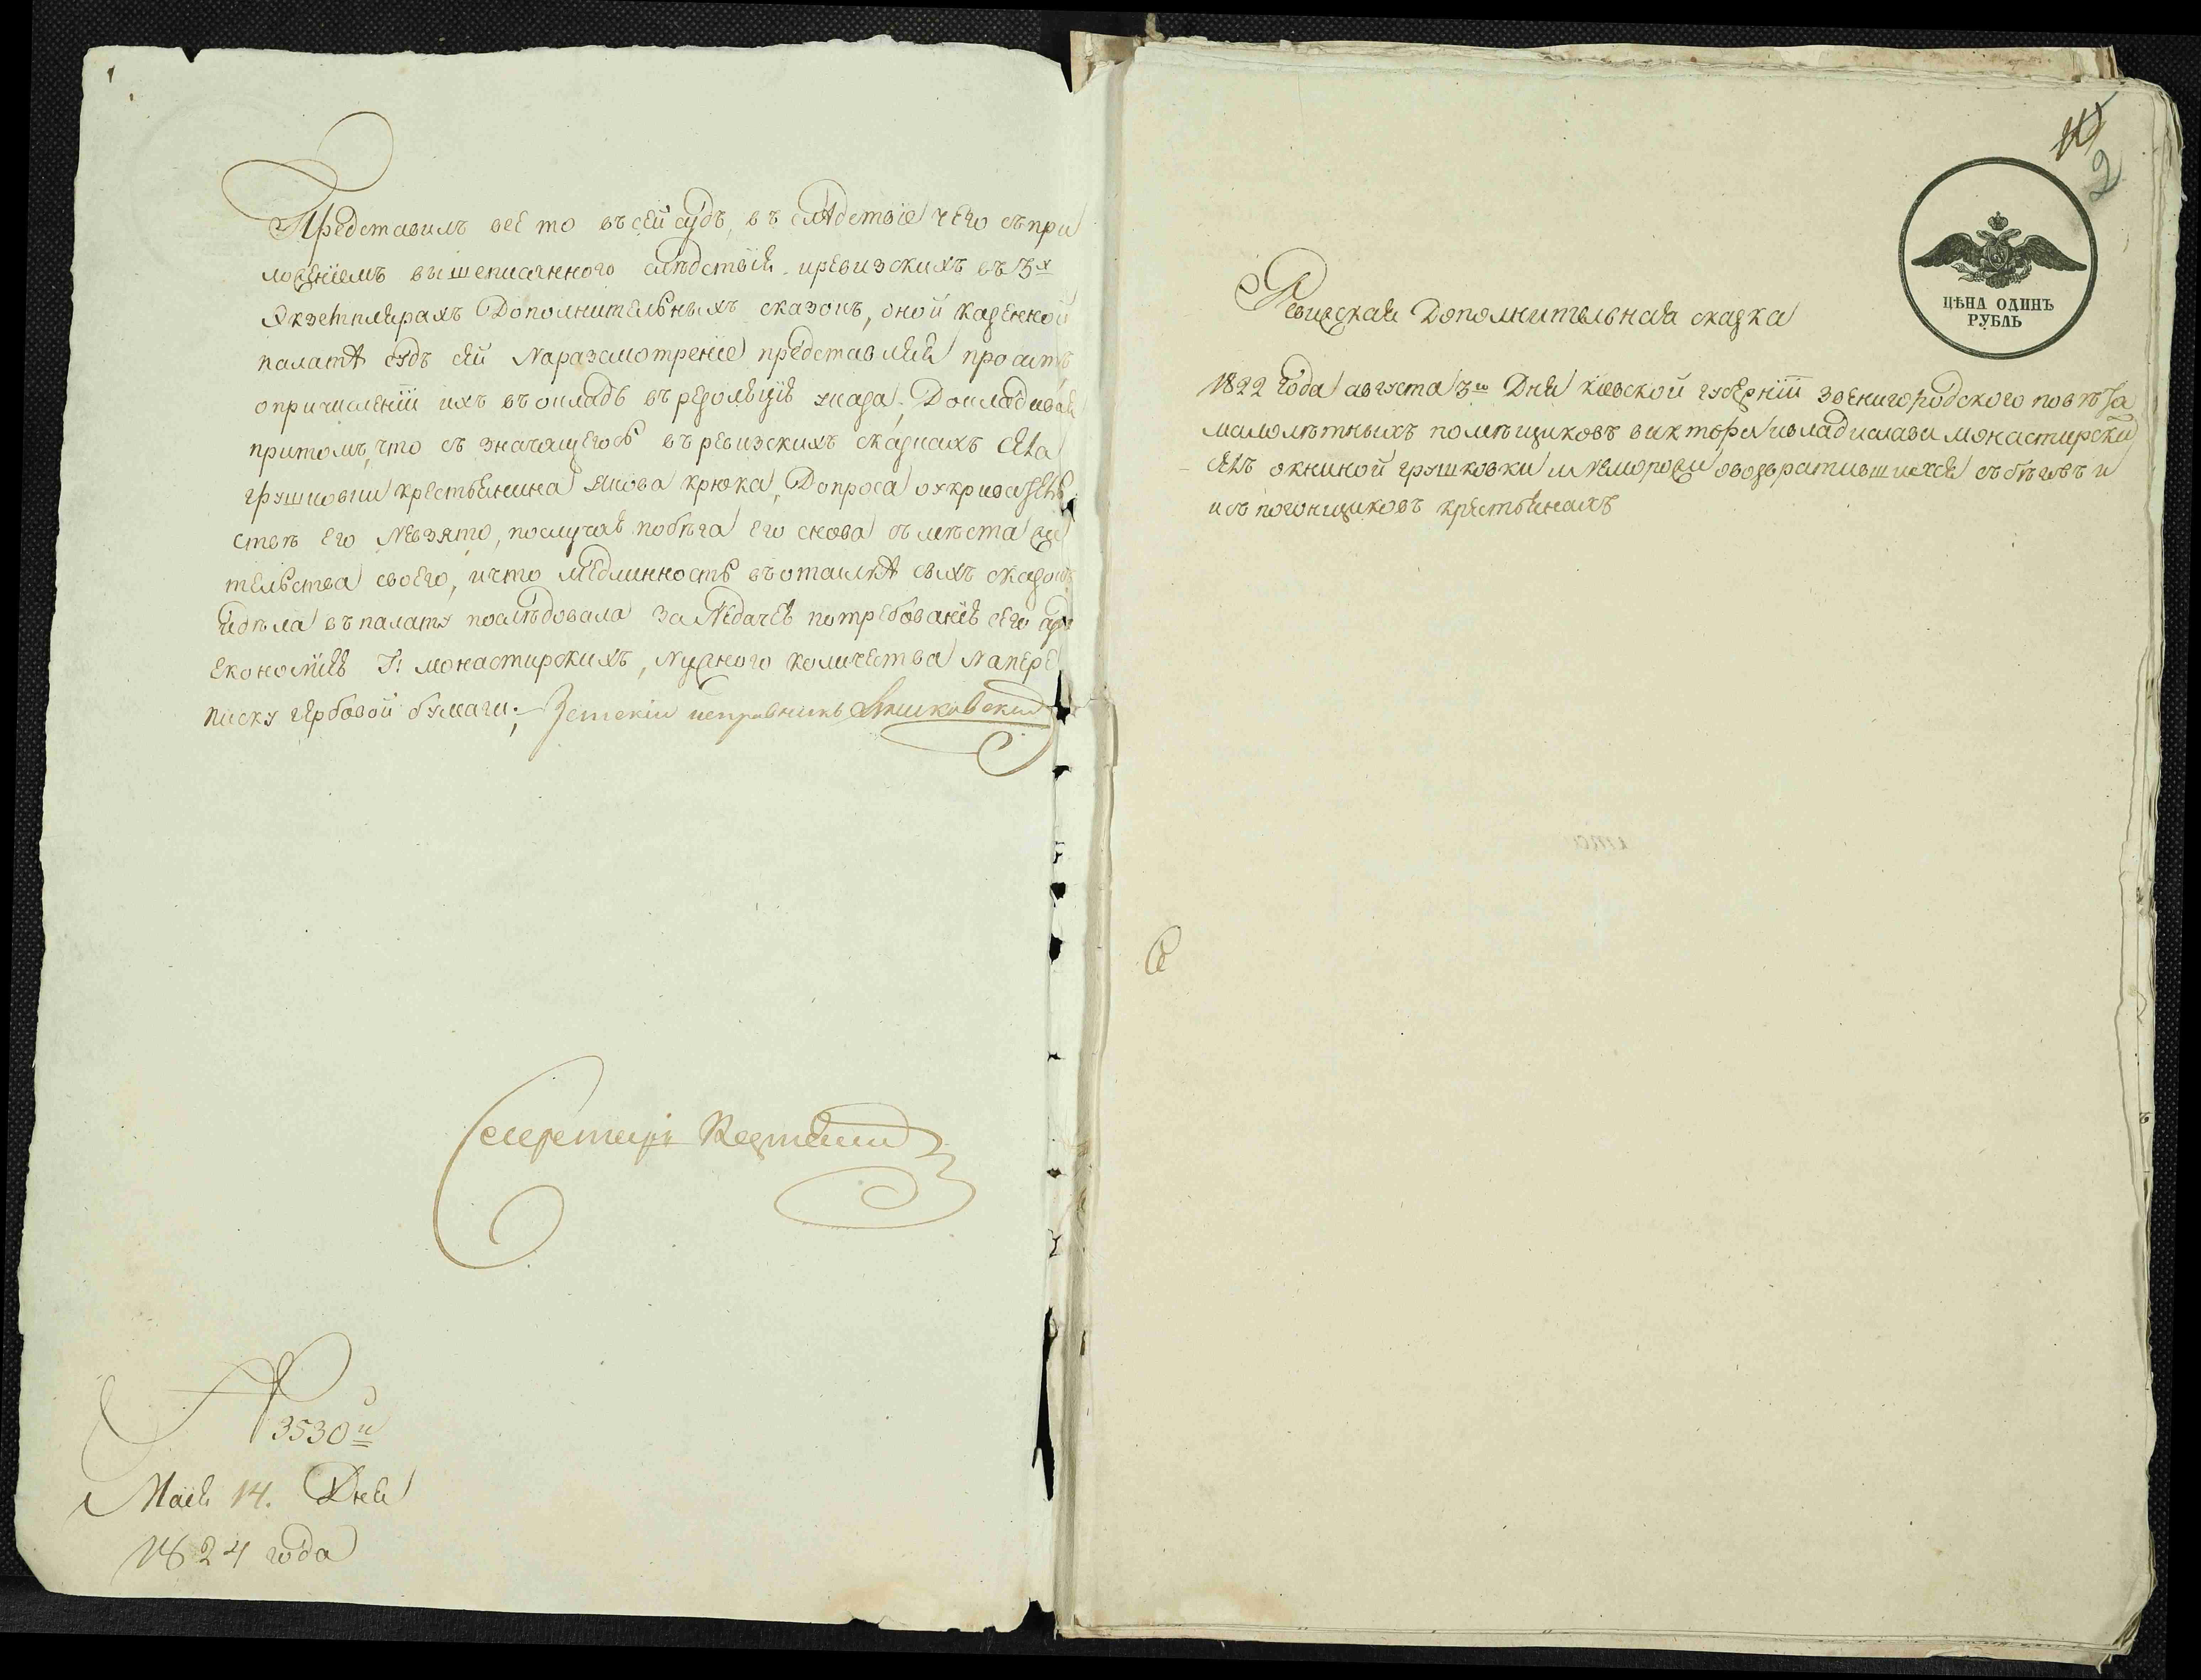 Представилъ все то въ сей судъ, въ слѣдствіе чего съ при
ложеніемъ вышеписанного слѣдствія и ревизскихъ въ 3х
Экземплярахъ Дополнительныхъ сказокъ, оной Казенной
палатѣ судъ сей на разсмотреніе представляя проситъ
о причисленіи ихъ въ окладъ въ резолюціѣ указа. Докладывая
притомъ, что съ значащегось въ ревизскихъ сказкахъ села
Грушковки крестьянина Якова Крюка, Допроса о укриватель
ствѣ его невзято, по случаю побѣга его снова съ мѣста жи
тельства своего, и что мѣдлинность въ отсилкѣ сихъ сказокъ
и дѣла въ палату послѣдовала за недачею по требованію сего суда
Економіею Г: Монастирскихъ, нужного количества на пере
писку гербовой бумаги;
Земскій исправникъ
Секретарь
№ 3530й
Маія 14. Дня
1824 года
2
ЦѢНА ОДИНЪ
РУБЛЬ
Ревизская Дополнительная сказка
1822 года августа 3го Дня Кіевской губерніи Звенигородского повѣта
малолѣтныхъ помѣщиковъ Виктора и Владислава Монастирски
селъ Окниной Грушковки и Неморожи о возвратившихся съ бѣговъ и
изъ погонщиковъ крестьянахъ